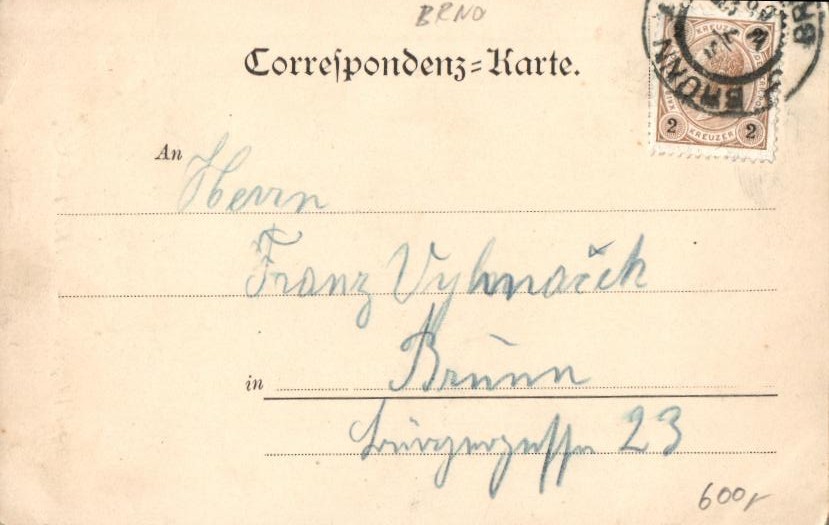 BRNO
Correspondenz=Karte.
BRÜNN
BR
KREUZER
2 KREUZER 2
An Herrn
Franz Vyhnaček
in Brünn
Bürgergasse 23
600,-